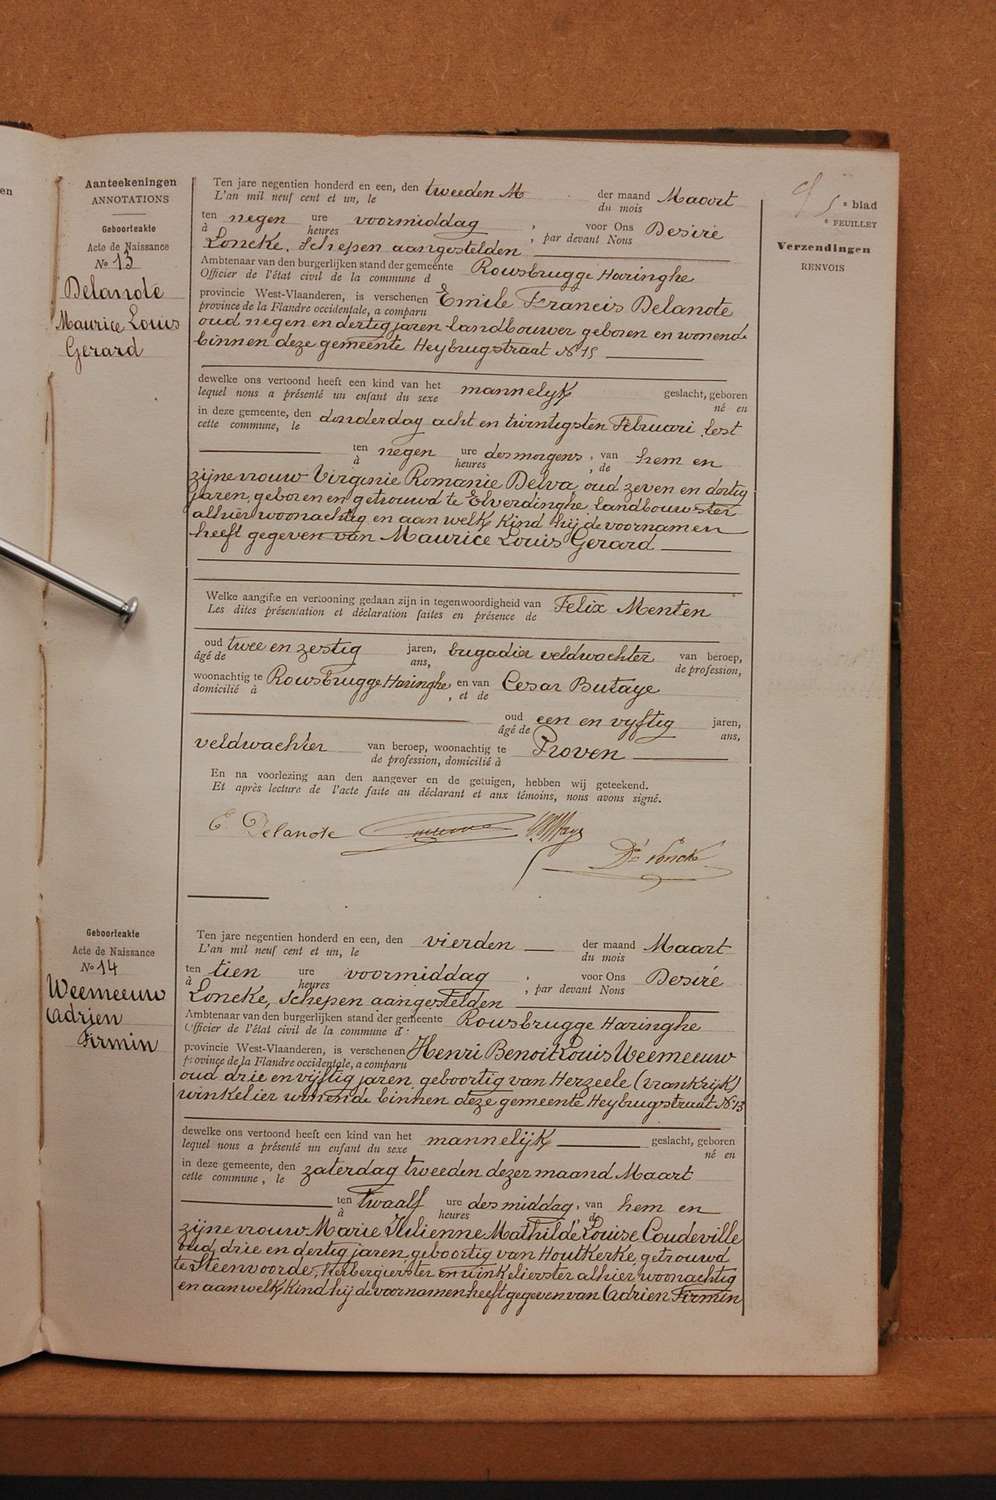 en
5e blad
e FEUILLET
Verzendingen
RENVOIS
Aanteekeningen
ANNOTATIONS
Geboorteakte
Acte de Naissance
No 13
Delanote
Maurice Louis
Gerard
Ten jare negentien honderd en een, den tweeden M der maand Maart
L'an mil neuf cent et un, le du mois
ten negen ure voormiddag , voor Ons Desiré
à heures , par devant Nous
Loncke, Schepen aangestelden
Ambtenaar van den burgerlijken stand der gemeente Rousbrugge Haringhe
Officier de l'état civil de la commune d
provincie West-Vlaanderen, is verschenen Emile Francis Delanote
province de la Flandre occidentale, a comparu
oud negen en dertig jaren landbouwer geboren en wonende
binnen deze gemeente Heybrugstraat No 15
dewelke ons vertoond heeft een kind van het mannelijk geslacht, geboren
lequel nous a présenté un enfant du sexe né en
in deze gemeente, den donderdag acht en twintigsten Februari lest
cette commune, le
ten negen ure des morgens , van hem en
à heures , de
zijne vrouw Virginie Romanie Delva oud zeven en dertig
jaren, geboren en getrouwd te Elverdinghe, landbouwster
alhier woonachtig en aan welk kind hij de voornamen
heeft gegeven van Maurice Louis Gerard
Welke aangifte en vertooning gedaan zijn in tegenwoordigheid van Felix Menten
Les dites présentation et déclaration faites en présence de
oud twee en zestig jaren, brugadier veldwachter van beroep,
âgé de ans, de profession,
woonachtig te Rousbrugge Haringhe en van Cesar Butaye
domicilié à , et de
oud een en vijftig jaren,
âgé de ans,
veldwachter van beroep, woonachtig te Proven
de profession, domicilié à
En na voorlezing aan den aangever en de getuigen, hebben wij geteekend.
Et après lecture de l'acte faite au déclarant et aux témoins, nous avons signé.
E. Delanote
Dé Loncke
Geboorteakte
Acte de Naissance
No 14
Weemeeuw
Adrien
Firmin
Ten jare negentien honderd en een, den vierden der maand Maart
L'an mil neuf cent et un, le du mois
ten tien ure voormiddag , voor Ons Desiré
à heures , par devant Nous
Loncke, Schepen aangestelden
Ambtenaar van den burgerlijken stand der gemeente Rousbrugge Haringhe
Officier de l'état civil de la commune d
provincie West-Vlaanderen, is verschenen Henri Benoit Louis Weemeeuw
province de la Flandre occidentale, a comparu
oud drie en vijftig jaren, geboortig van Herzeele (vrankrijk)
winkelier wonende binnen deze gemeente Heybrugstraat No 13
dewelke ons vertoond heeft een kind van het mannelijk geslacht, geboren
lequel nous a présenté un enfant du sexe né en
in deze gemeente, den zaterdag tweeden dezer maand Maart
cette commune, le
ten twaalf ure des middag, van hem en
à heures de
zijne vrouw Marie Julienne Mathilde Louise Coudeville
oud drie en dertig jaren geboortig van Houtkerke, getrouwd
te Steenvoorde, herbergierster en winkelierster alhier woonachtig
en aan welk kind hij de voornamen heeft gegeven van Adrien Firmin